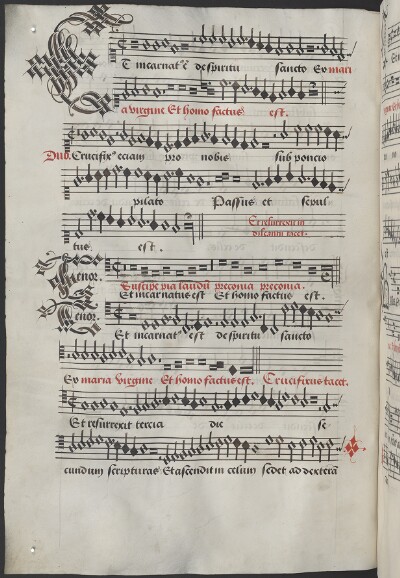 Et incarnat' ē despiritu sancto Ex mari
a virgine Et homo factus est.
Duo. Crucifix' eciam pro nobis sub poncio
pilato Passus et sepul
tus est. Et resurrexit in
discantu tacet.
Tenor. Suscipe pia laudū preconia preconia.
Et incarnatus est Et homo factus est.
Tenor. Et incarnat' est despiritu sancto
Ex maria Virgine Et homo factus est. Crucifixus tacet.
Et resurrexit tercia die se
cundum scripturas Et ascendit in celum sedet ad dexterā